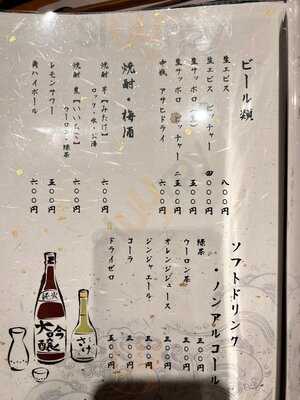 ビール類
生エビス 八〇〇円
生エビス ピッチャー 四〇〇〇円
生サッポロ 五〇〇円
生サッポロ ピッチャー 二五〇〇円
中瓶 アサヒドライ 六〇〇円
焼酎・梅酒
焼酎 芋【みたけ】 六〇〇円
ロック・水・お湯
焼酎 麦【いいちこ】 六〇〇円
ウーロン・緑茶
レモンサワー 五〇〇円
角ハイボール 六〇〇円
ソフトドリンク
・ノンアルコール
緑茶 三〇〇円
ウーロン茶 三〇〇円
オレンジジュース 三〇〇円
ジンジャエール 三〇〇円
コーラ 三〇〇円
ドライゼロ 五〇〇円
大吟醸
さけ